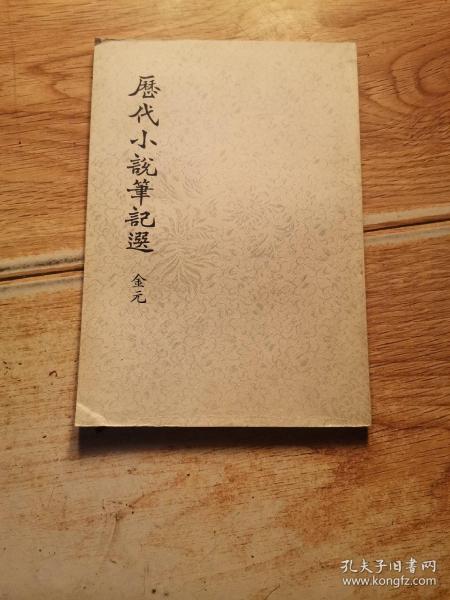 歷代小說筆記選
金元
孔夫子旧书网
www.kongfz.com